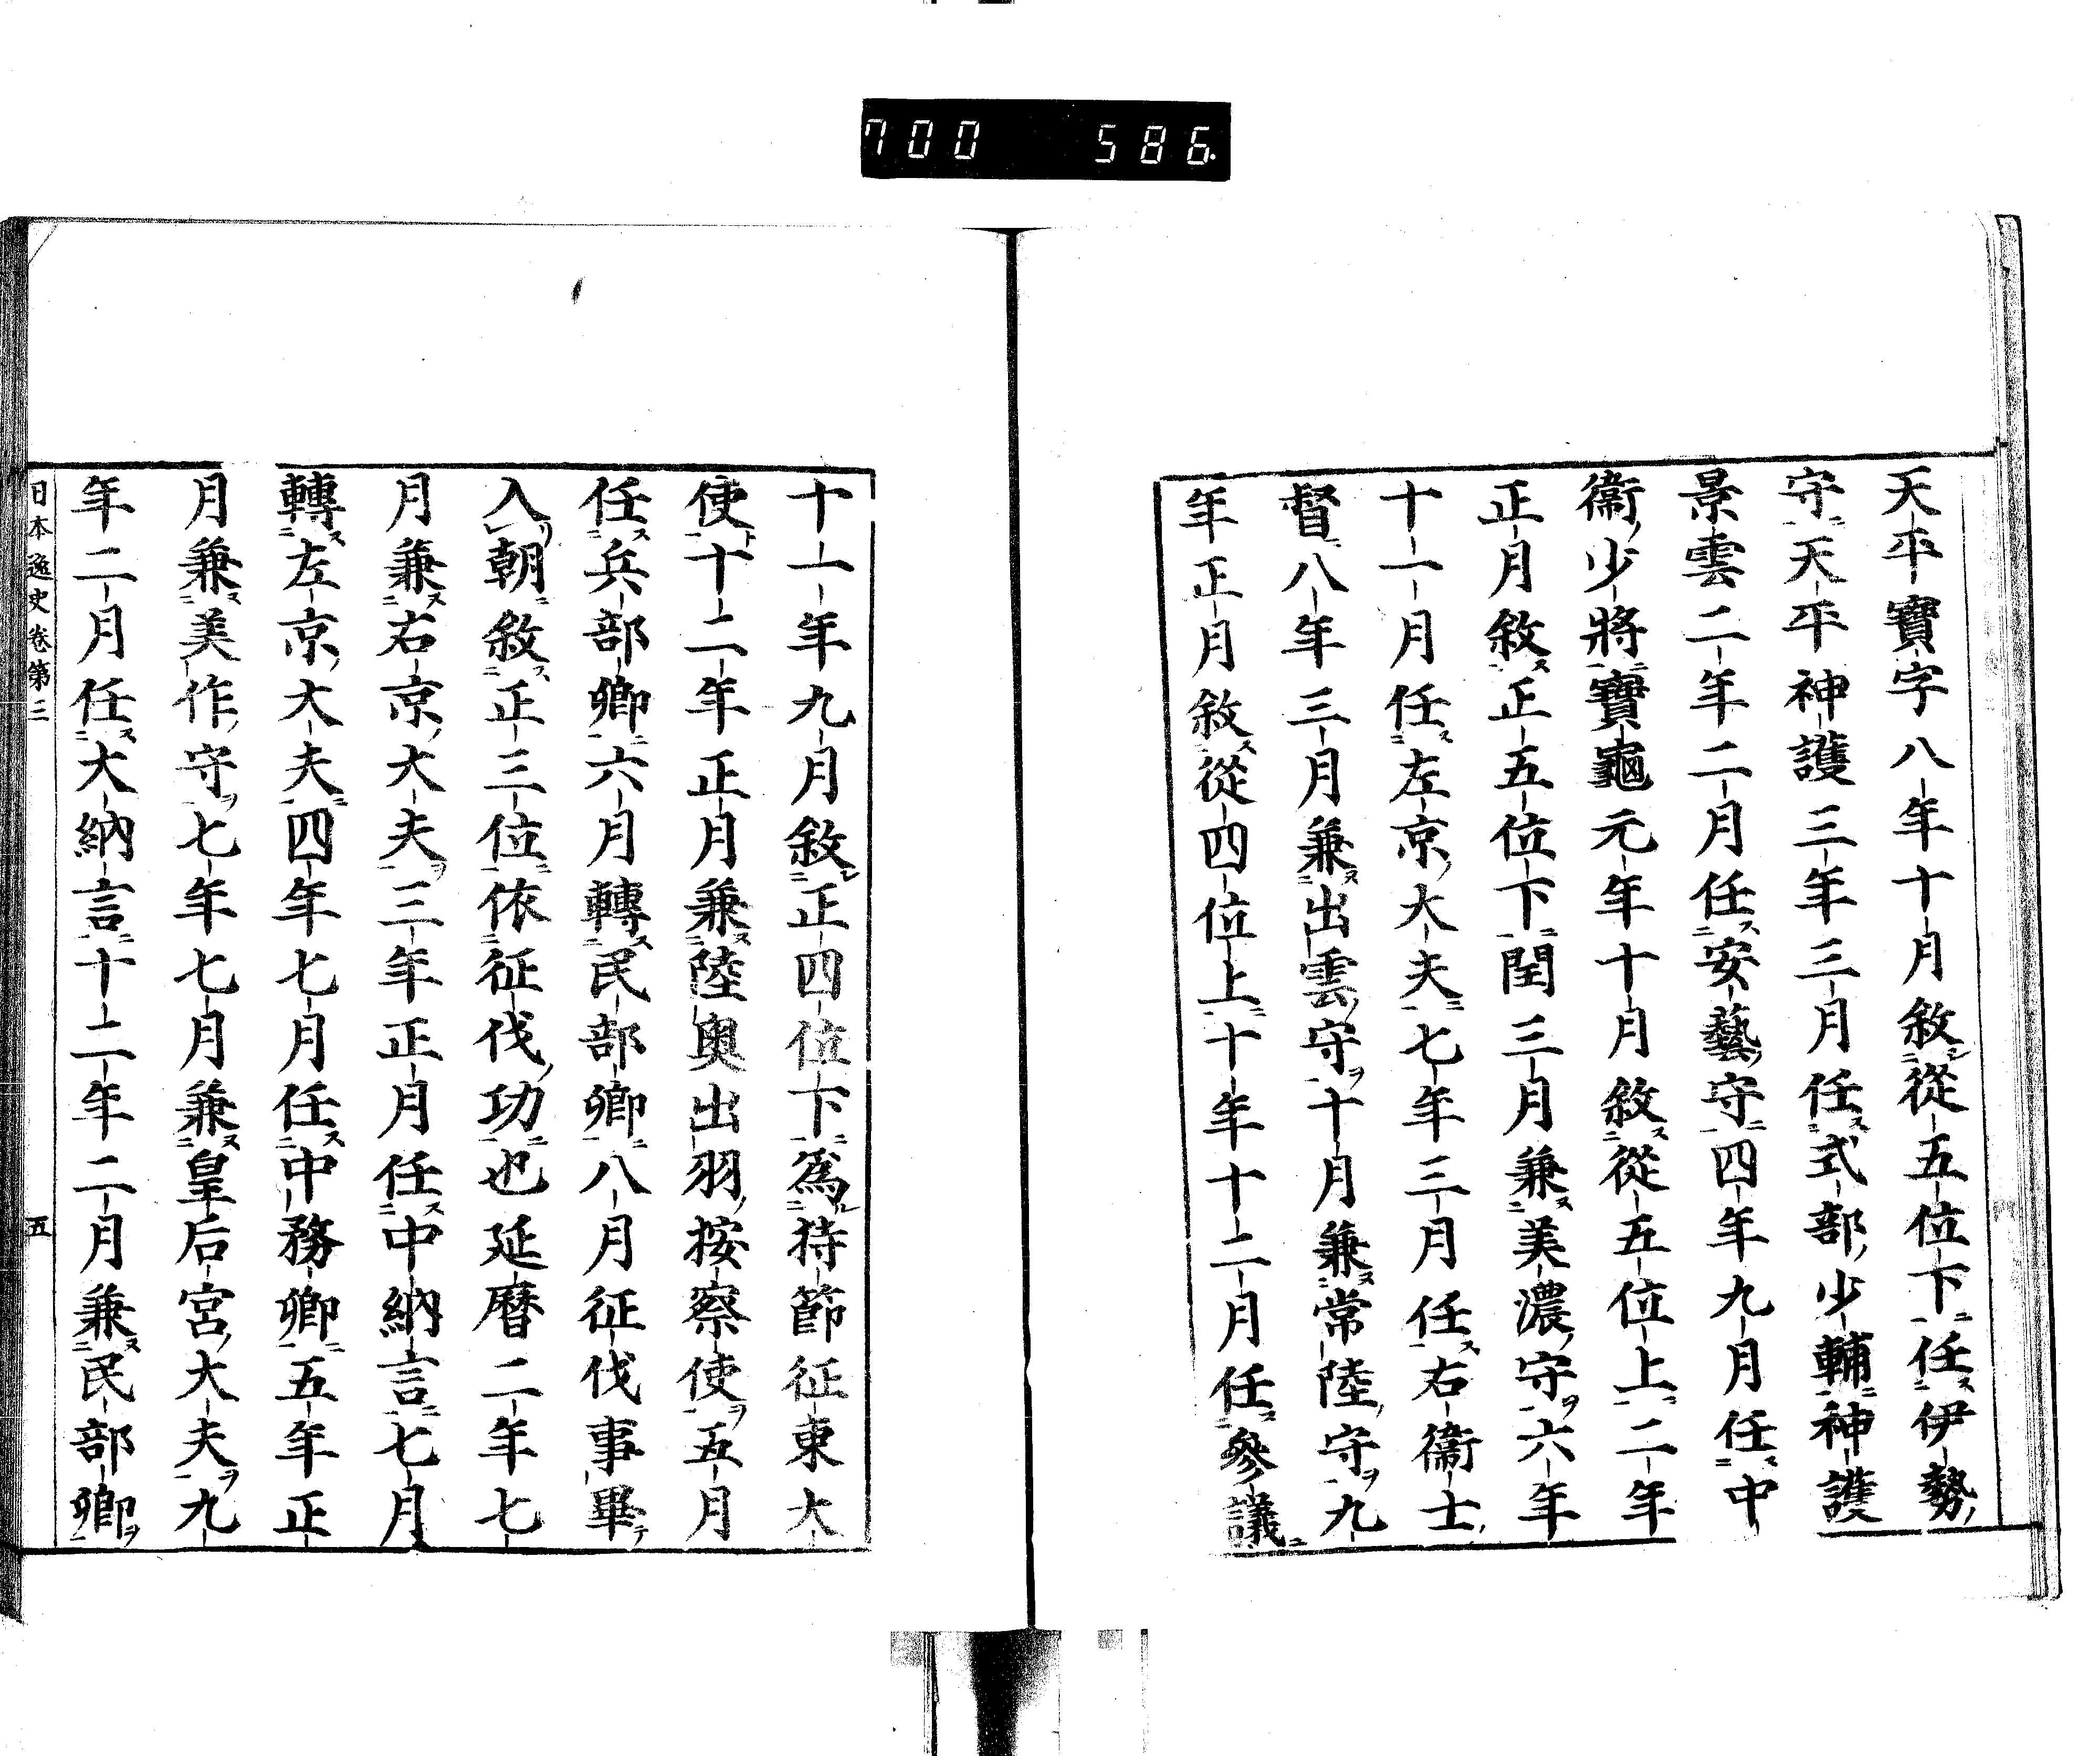 700 586
天平寶字八年十月敘從五位下任伊勢
守天平神護三年三月任式部少輔神護
景雲二年二月任安藝守四年九月任中
衞少將寶龜元年十月敘從五位上二年
正月敘正五位下閏三月兼美濃守六年
十一月任左京大夫七年三月任右衞士
督八年三月兼出雲守十月兼常陸守九
年正月敘從四位上十年十二月任參議
十一年九月敘正四位下爲持節征東大
使十二年正月兼陸奧出羽按察使五月
任兵部卿六月轉民部卿八月征伐事畢
入朝敘正三位依征伐功也延曆二年七
月兼右京大夫三年正月任中納言七月
轉左京大夫四年七月任中務卿五年正
月兼美作守七年七月兼皇后宮大夫九
年二月任大納言十二年二月兼民部卿
日本逸史卷第三 五